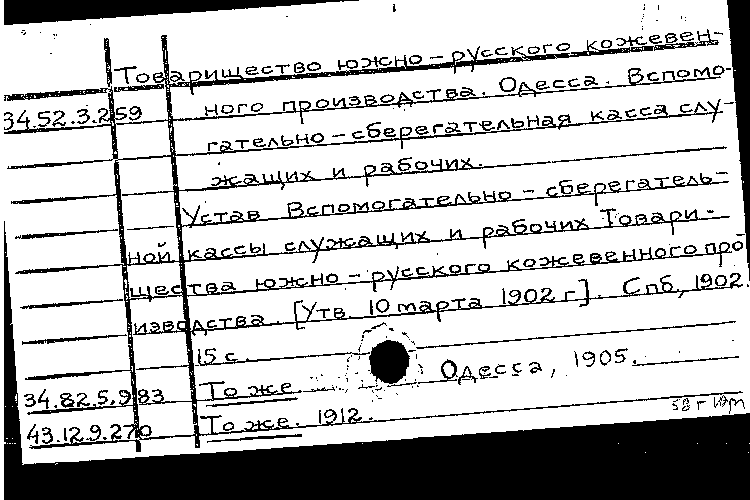 Товарищество южно-русского кожевен-
34.52.3.259 ного производства. Одесса. Вспомо-
гательно-сберегательная касса слу-
жащих и рабочих.
Устав Вспомогательно-сберегатель-
ной кассы служащих и рабочих Товари-
щества южно-русского кожевенного про
изводства. [Утв. 10 марта 1902 г.]. Спб., 1902.
15 с.
34.82.5.983 То же. Одесса, 1905.
43.12.9.270 То же. 1912.